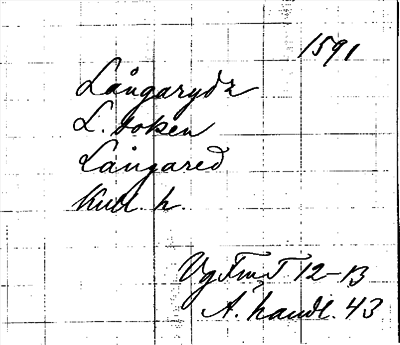 1591
Långarydz
L. soken
Långared
Kull. h.
VgFmT 12-13
A. handl. 43